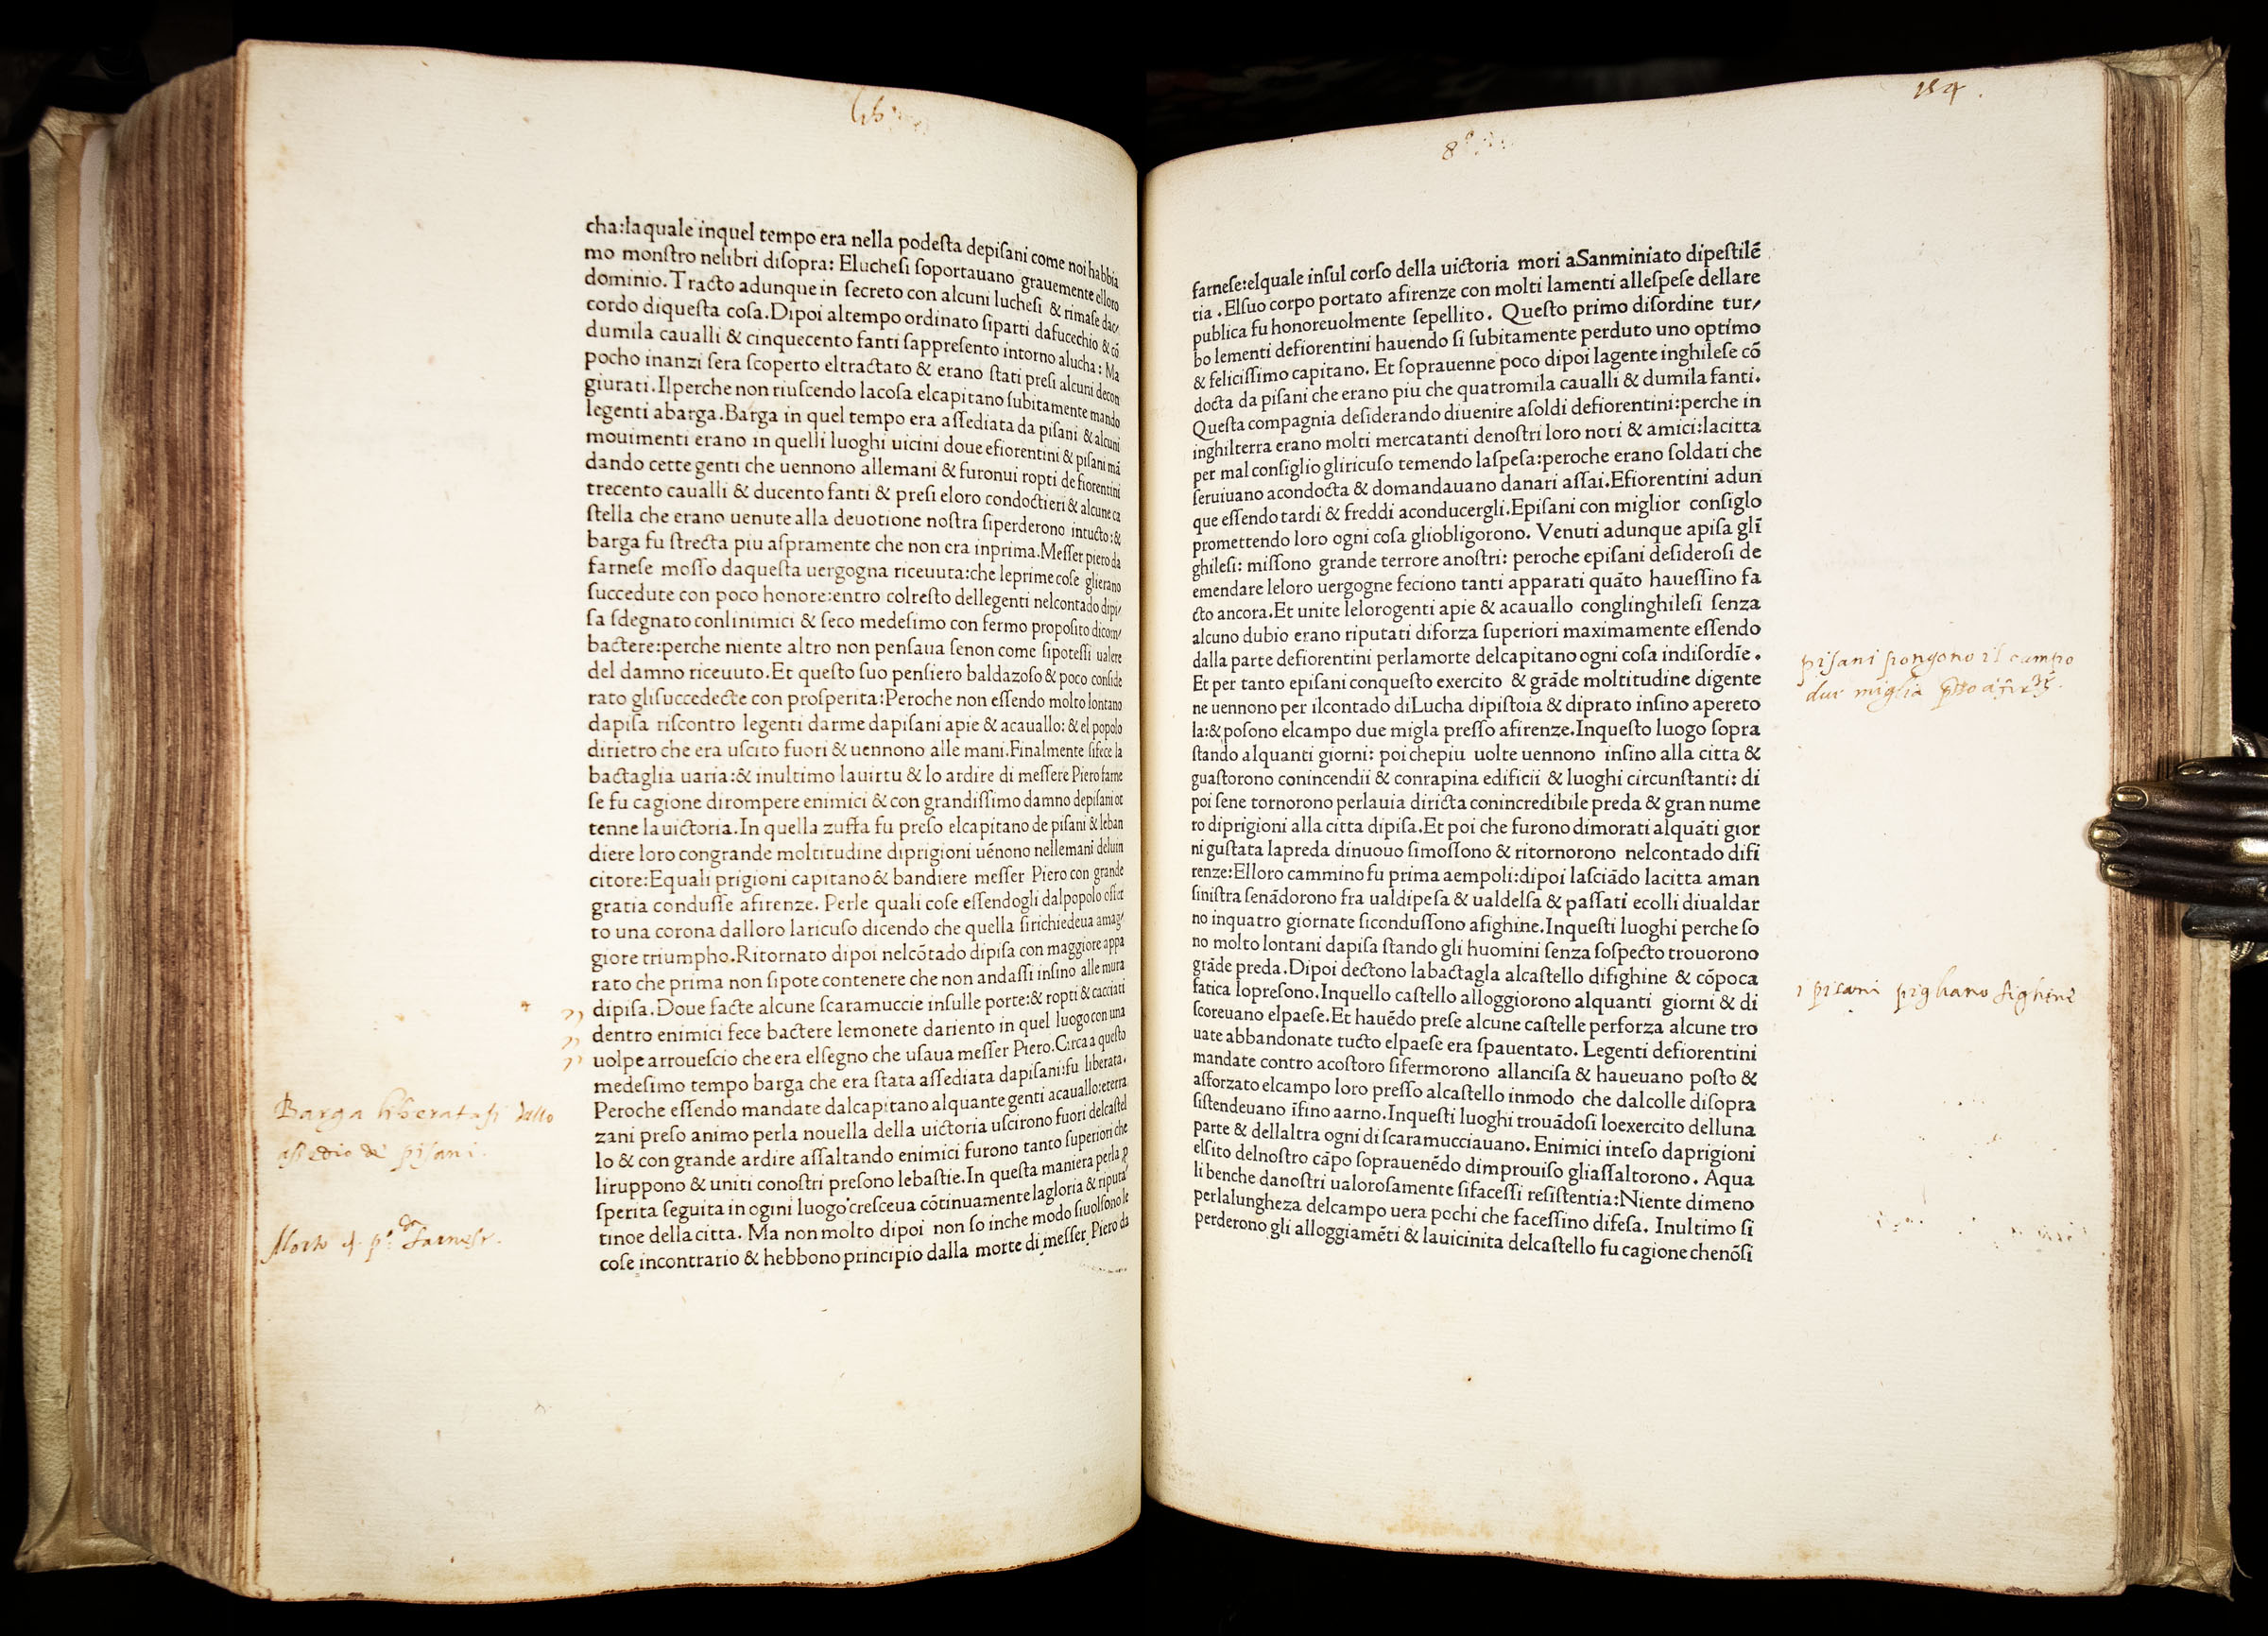 lib
cha:laquale inquel tempo era nella podeſta depiſani come noi habbia
mo monſtro nelibri diſopra: Elucheſi ſoportauano grauemente elloro
dominio. Tracto adunque in ſecreto con alcuni lucheſi & rimaſe dac/
cordo diqueſta coſa. Dipoi altempo ordinato ſiparti dafucechio & cō
dumila caualli & cinquecento fanti ſappreſento intorno alucha: Ma
pocho inanzi ſera ſcoperto eltractato & erano ſtati preſi alcuni decon
giurati. Ilperche non riuſcendo lacoſa elcapitano ſubitamente mando
legenti abarga. Barga in quel tempo era aſſediata da piſani & alcuni
mouimenti erano in quelli luoghi uicini doue efiorentini & piſani mā
dando cette genti che uennono allemani & furonui ropti de fiorentini
trecento caualli & ducento fanti & preſi eloro condoctieri & alcune ca
ſtella che erano uenute alla deuotione noſtra ſiperderono intucto: &
barga fu ſtrecta piu aſpramente che non era inprima. Meſſer piero da
farneſe moſſo daqueſta uergogna riceuuta: che leprime coſe glierano
ſuccedute con poco honore: entro colreſto dellegenti nelcontado dipi/
ſa ſdegnato conlinimici & ſeco medeſimo con fermo propoſito dicom/
bactere: perche niente altro non penſaua ſenon come ſipoteſſi ualere
del damno riceuuto. Et queſto ſuo penſiero baldazoſo & poco conſide
rato gliſuccedecte con proſperita: Peroche non eſſendo molto lontano
dapiſa riſcontro legenti darme dapiſani apie & acauallo: & el popolo
dirietro che era uſcito fuori & uennono alle mani. Finalmente ſifece la
bactaglia uaria: & inultimo lauirtu & lo ardire di meſſere Piero farne
ſe fu cagione dirompere enimici & con grandiſſimo damno depiſani ot
tenne lauictoria. In quella zuffa fu preſo elcapitano de piſani & leban
diere loro congrande moltitudine diprigioni uēnono nellemani deluin
citore: Equali prigioni capitano & bandiere meſſer Piero con grande
gratia conduſſe afirenze. Perle quali coſe eſſendogli dalpopolo offer
to una corona dalloro laricuſo dicendo che quella ſirichiedeua amag/
giore triumpho. Ritornato dipoi nelcōtado dipiſa con maggiore appa
rato che prima non ſipote contenere che non andaſſi inſino alle mura
dipiſa. Doue facte alcune ſcaramuccie inſulle porte: & ropti & cacciati
dentro enimici fece bactere lemonete dariento in quel luogo con una
uolpe arroueſcio che era elſegno che uſaua meſſer Piero. Circa a queſto
medeſimo tempo barga che era ſtata aſſediata dapiſani: fu liberata.
Peroche eſſendo mandate dalcapitano alquante genti acauallo: eterra
zani preſo animo perla nouella della uictoria uſcirono fuori delcaſtel
lo & con grande ardire aſſaltando enimici furono tanto ſuperiori che
liruppono & uniti conoſtri preſono lebaſtie. In queſta maniera perla ꝓ
ſperita ſeguita in ogini luogo creſceua cōtinuamente lagloria & riputa/
tinoe della citta. Ma non molto dipoi non ſo inche modo ſiuolſono le
coſe incontrario & hebbono principio dalla morte di meſſer Piero da
Barga liberatasi dallo
assedio de pisani.
Morte d. p.º da Farnese.
8º
154.
farneſe: elquale inſul corſo della uictoria mori aSanminiato dipeſtilē
tia. Elſuo corpo portato afirenze con molti lamenti alleſpeſe dellare
publica fu honoreuolmente ſepellito. Queſto primo diſordine tur/
bo lementi defiorentini hauendo ſi ſubitamente perduto uno optimo
& feliciſſimo capitano. Et ſoprauenne poco dipoi lagente inghileſe cō
docta da piſani che erano piu che quatromila caualli & dumila fanti.
Queſta compagnia deſiderando diuenire aſoldi defiorentini: perche in
inghilterra erano molti mercatanti denoſtri loro noti & amici: lacitta
per mal conſiglio gliricuſo temendo laſpeſa: peroche erano ſoldati che
ſeruiuano acondocta & domandauano danari aſſai. Efiorentini adun
que eſſendo tardi & freddi aconducergli. Epiſani con miglior conſiglo
promettendo loro ogni coſa gliobligorono. Venuti adunque apiſa glī
ghileſi: miſſono grande terrore anoſtri: peroche epiſani deſideroſi de
emendare leloro uergogne feciono tanti apparati quāto haueſſino fa
cto ancora. Et unite lelorogenti apie & acauallo conglinghileſi ſenza
alcuno dubio erano riputati diforza ſuperiori maximamente eſſendo
dalla parte defiorentini perlamorte delcapitano ogni coſa indiſordīe.
Et per tanto epiſani conqueſto exercito & grāde moltitudine digente
ne uennono per ilcontado diLucha dipiſtoia & diprato inſino apereto
la: & poſono elcampo due migla preſſo afirenze. Inqueſto luogo ſopra
ſtando alquanti giorni: poi chepiu uolte uennono inſino alla citta &
guaſtorono conincendii & conrapina edificii & luoghi circunſtanti: di
poi ſene tornorono perlauia diricta conincredibile preda & gran nume
ro diprigioni alla citta dipiſa. Et poi che furono dimorati alquāti gior
ni guſtata lapreda dinuouo ſimoſſono & ritornorono nelcontado difi
renze: Elloro cammino fu prima aempoli: dipoi laſciādo lacitta aman
ſiniſtra ſenādorono fra ualdipeſa & ualdelſa & paſſati ecolli diualdar
no inquatro giornate ſiconduſſono afighine. Inqueſti luoghi perche ſo
no molto lontani dapiſa ſtando gli huomini ſenza ſoſpecto trouorono
grāde preda. Dipoi dectono labactagla alcaſtello difighine & cōpoca
fatica lopreſono. Inquello caſtello alloggiorono alquanti giorni & di
ſcoreuano elpaeſe. Et hauēdo preſe alcune caſtelle perforza alcune tro
uate abbandonate tucto elpaeſe era ſpauentato. Legenti defiorentini
mandate contro acoſtoro ſifermorono allanciſa & haueuano poſto &
afforzato elcampo loro preſſo alcaſtello inmodo che dalcolle diſopra
ſiſtendeuano īfino aarno. Inqueſti luoghi trouādoſi loexercito delluna
parte & dellaltra ogni di ſcaramucciauano. Enimici inteſo daprigioni
elſito delnoſtro cāpo ſoprauenēdo dimprouiſo gliaſſaltorono. Aqua
li benche danoſtri ualoroſamente ſifaceſſi reſiſtentia: Niente dimeno
perlalungheza delcampo uera pochi che faceſſino difeſa. Inultimo ſi
perderono gli alloggiamēti & lauicinita delcaſtello fu cagione chenōſi
pisani pongono il campo
due miglia
i pisani pigliano fighine